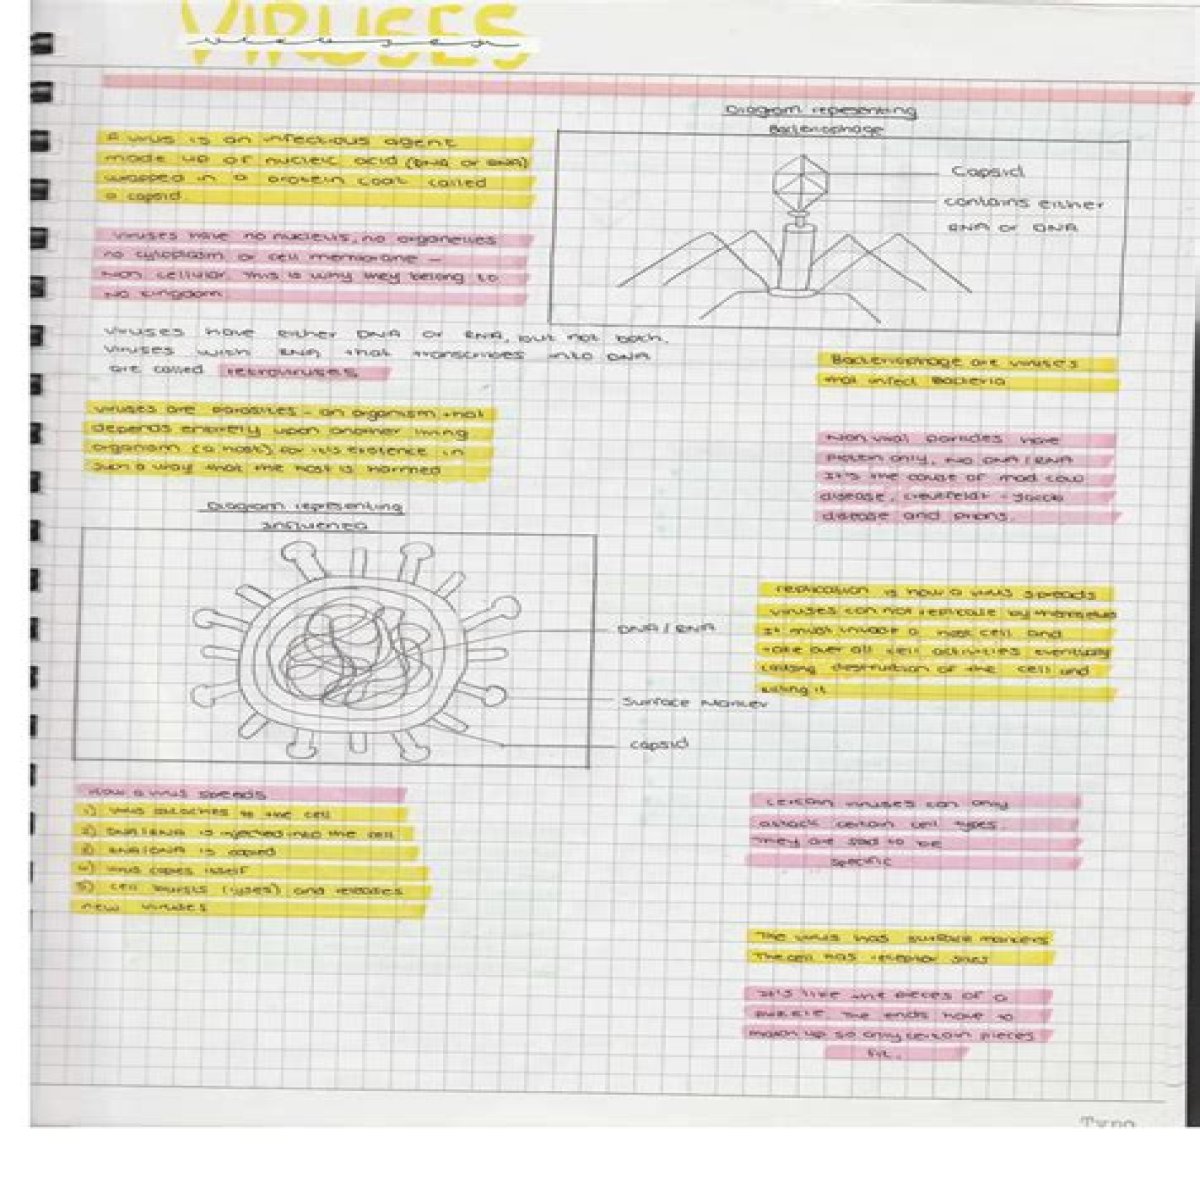 VIRUSES
viruses
A virus is an infectious agent
made up of nucleic acid (DNA or RNA)
wrapped in a protein coat called
a capsid.
Viruses have no nucleus, no organelles
no cytoplasm or cell membrane –
Non cellular. This is why they belong to
No kingdom.
Viruses have either DNA or RNA, but not both.
Viruses with RNA that transcribes into DNA
are called retroviruses
Viruses are parasites – an organism that
depends entirely upon another living
organism (a host) for its existence in
such a way that the host is harmed
Diagram representing
Influenza
DNA / RNA
Surface Marker
capsid
How a virus spreads
1) virus attaches to the cell
2) DNA/RNA is injected into the cell
3) RNA/DNA is copied
4) virus copies itself
5) cell bursts (lyses) and releases
new viruses
Diagram representing
Bacteriophage
Capsid
contains either
RNA or DNA
Bacteriophage are viruses
that infect Bacteria
Non viral particles have
protein only, No DNA / RNA
It's the cause of mad cow
disease, Creutfeldt - Jacob
disease and prions.
replication is how a virus spreads
viruses can not replicate by themselves
It must invade a host cell and
take over all cell activities eventually
causing destruction of the cell and
killing it
Certain viruses can only
attack certain cell types.
They are said to be
specific
The virus has surface markers
The cell has receptor sites
It's like the pieces of a
puzzle the ends have to
match up so only certain pieces
fit.